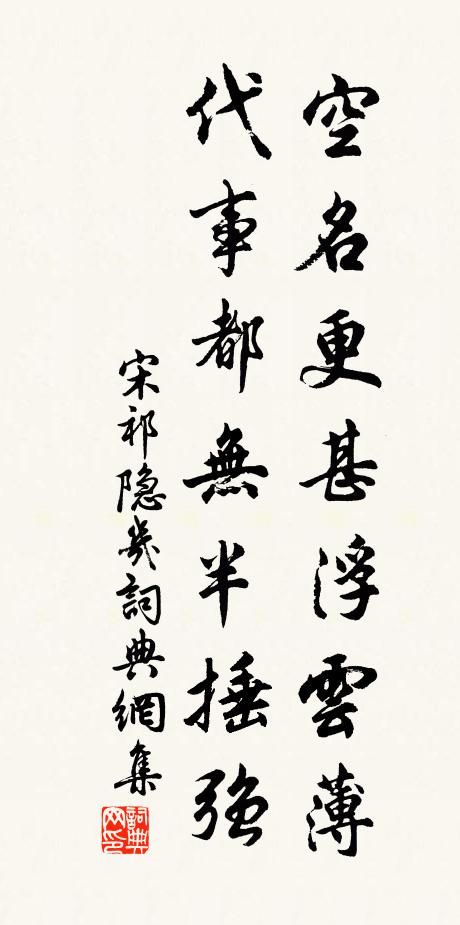 空名更甚浮雲薄
代事都無半捶強
宋祁隐几詞典網集
詞典网印